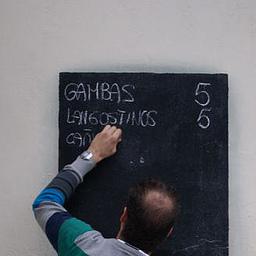 GAMBAS 5
LANGOSTINOS 5
CAÑ